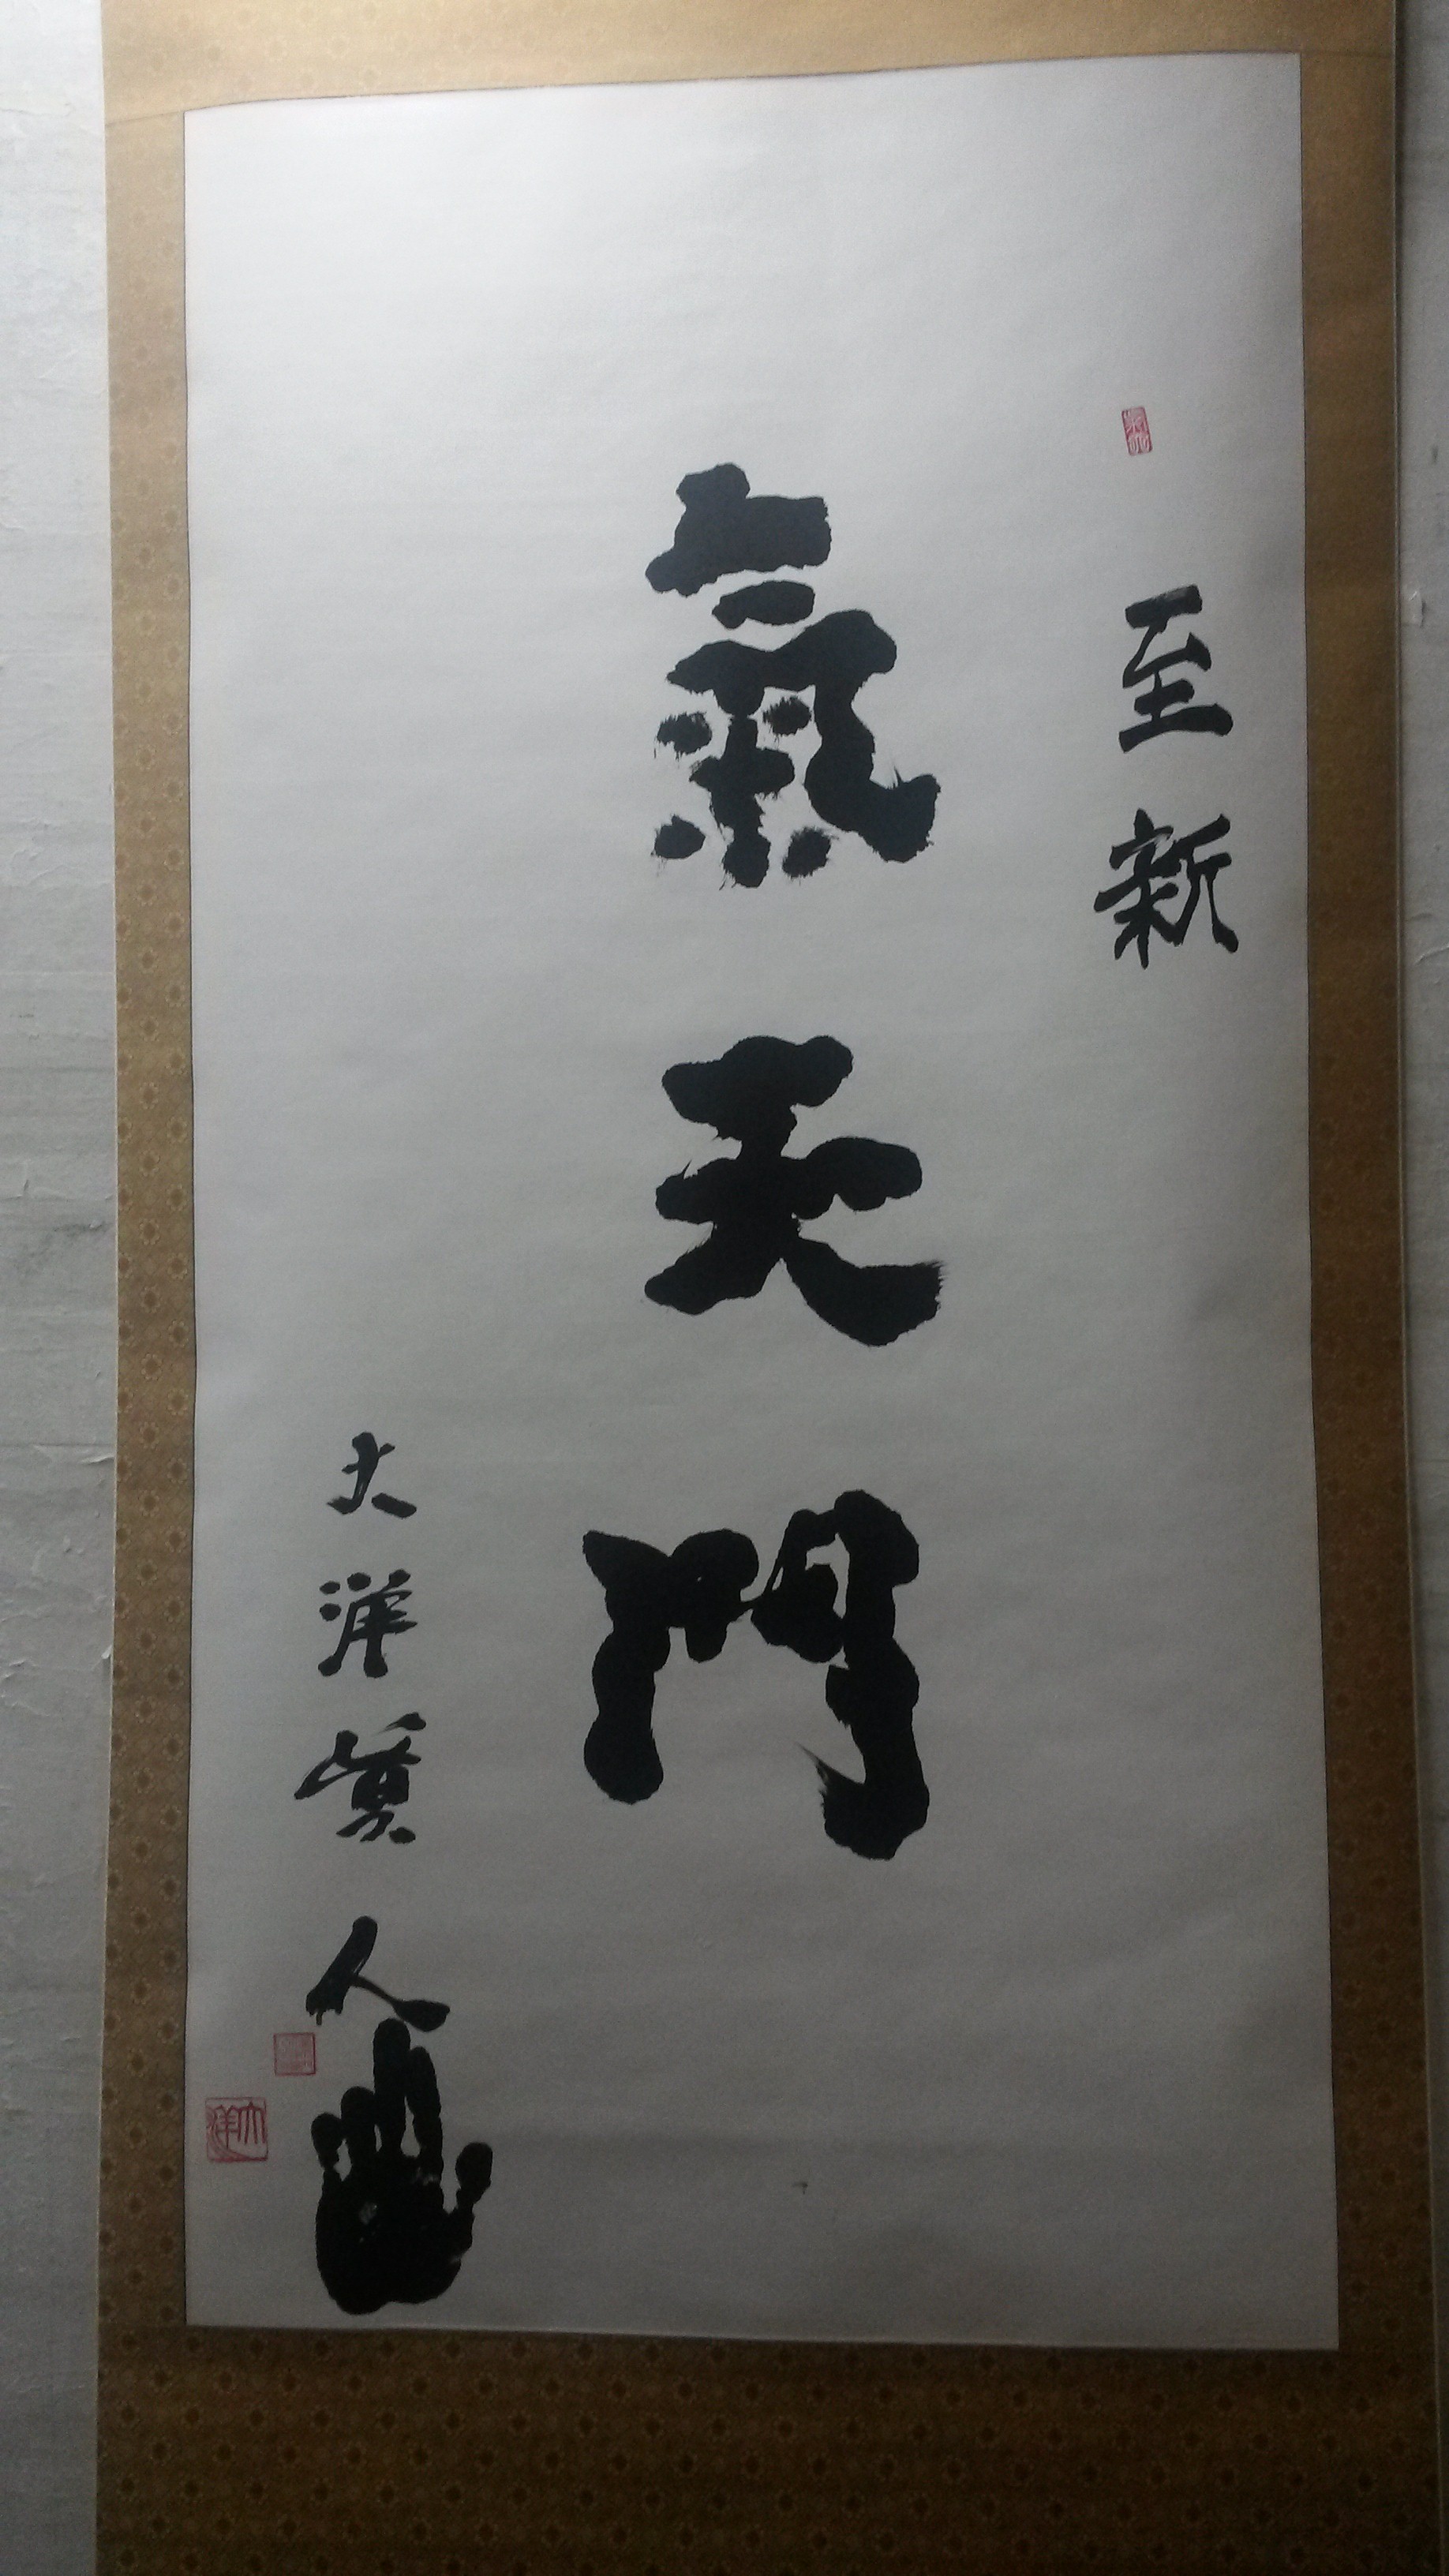 至新
氣天門
大洋真人
大洋